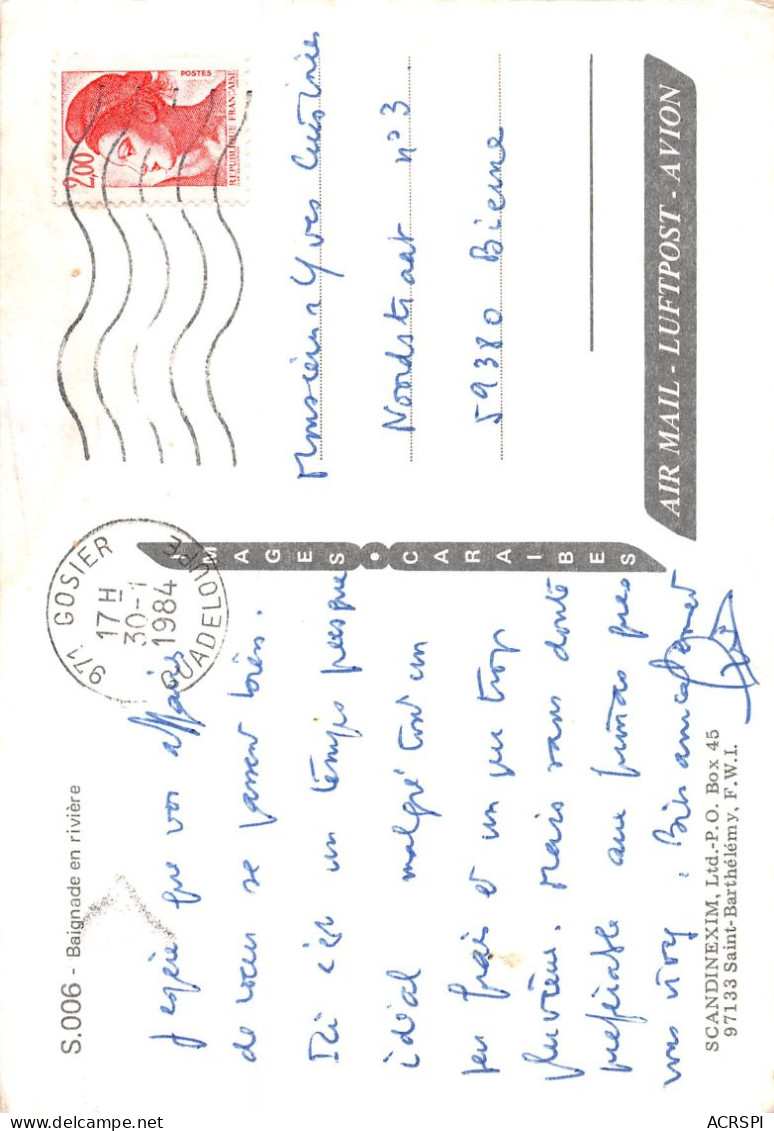 S.006 - Baignade en rivière
J'espère que vos affaires
de vœux se passent bien.
Ici c'est un temps presque
idéal malgré tout un
peu frais et un peu trop
pluvieux. Mais sans doute
préférable aux frimas que
vous vivez. Bien amicalement
SCANDINEXIM, Ltd.-P.O. Box 45
97133 Saint-Barthélémy, F.W.I.
971 GOSIER
17 H
30-1
1984
GUADELOUPE
IMAGES CARAIBES
2,00
POSTES
REPUBLIQUE FRANÇAISE
Monsieur Yves
Noordstraat n°3
59380 Bierne
AIR MAIL - LUFTPOST - AVION
ACRSPI